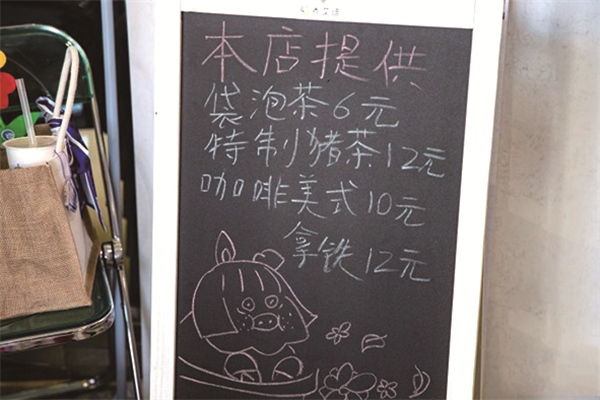 本店提供
袋泡茶6元
特制猪茶12元
咖啡美式10元
拿铁12元